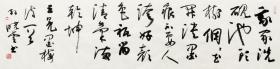 我家洗
砚池头
树个个
花开淡
墨痕不要人
夸好颜
色只留
清气满
乾坤
王冕墨梅